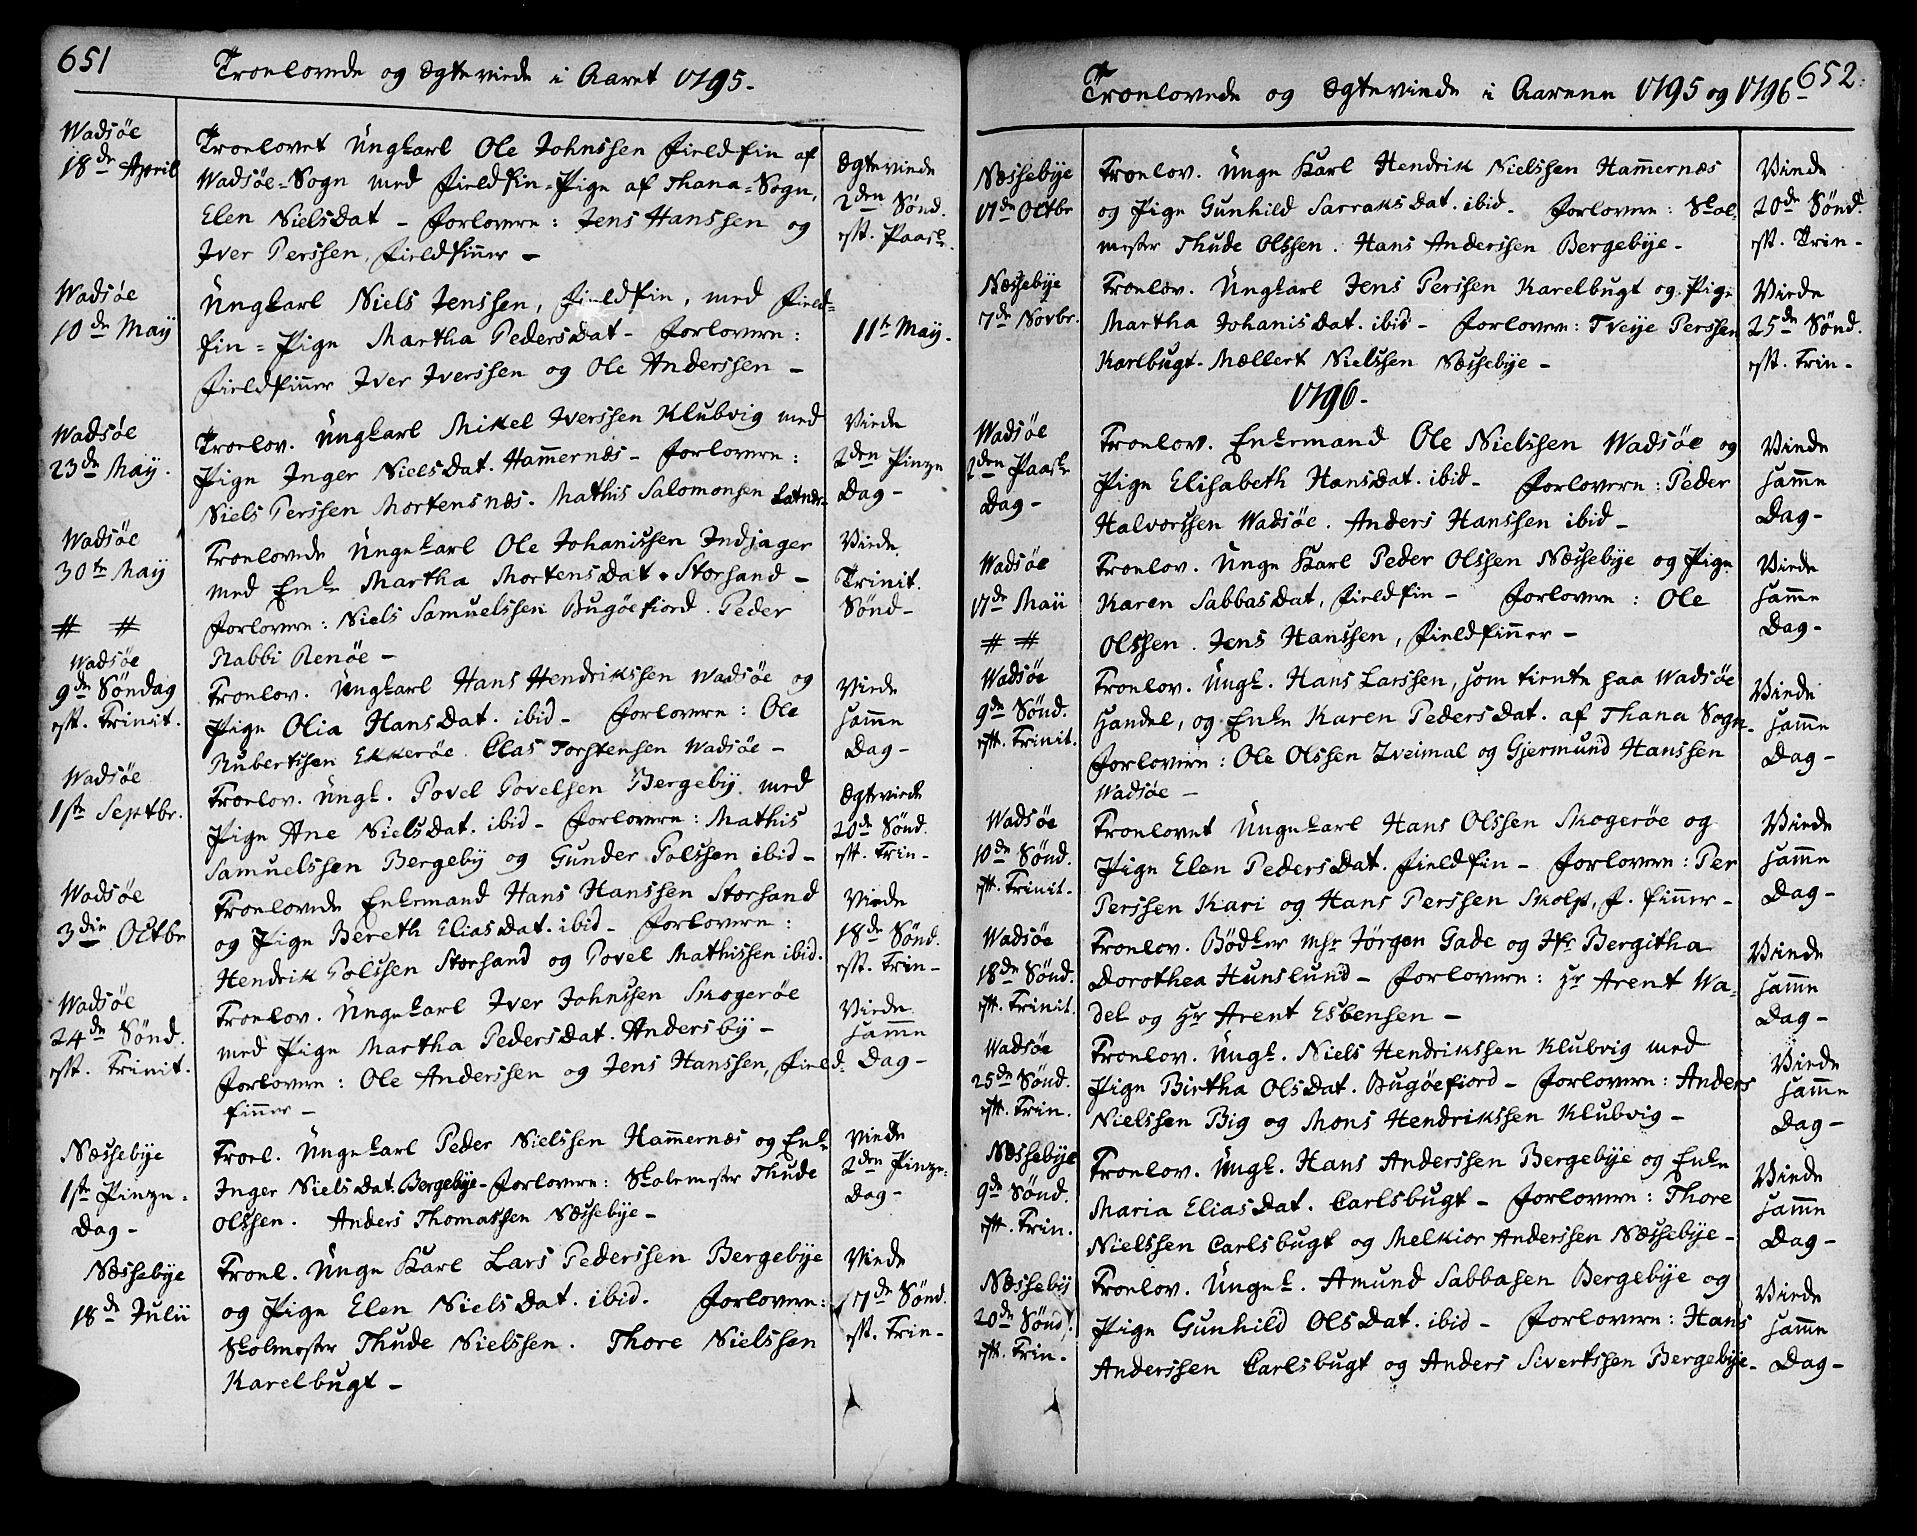 651
Troelovede og Ægteviede i Aaret 1795.
Wadsøe
18de April
Troelovet Ungkarl Ole Johnssen Fieldfin af
Wadsøe=Sogn med Fieldfin=Pige af Thana=Sogn,
Elen NielsDat – Forlovere: Jens Hanssen og
Iver Perssen, Fieldfiñer –
Ægteviede
2den Sønd.
eft. Paask.
Wadsøe
10de Maÿ
Ungkarl Niels Jenssen, Fieldfin, med Field=
fin=Pige Martha PedersDat – Forlovere:
Fieldfiñer Iver Iverssen og Ole Anderssen –
11te Maÿ.
Wadsøe
23de Maÿ.
Troelov. Ungkarl Mikel Iverssen Klubvig med
Pige Inger NielsDat. Ham̃ernæs – Forlovere:
Niels Perssen Mortensnæs. Mathis Salomonsen
Viede
2den Pinze
Dag –
Wadsøe
30te Maÿ
# #
Troelovede Ungekarl Ole Johanissen Indjager
med Enke Martha MortensDat. Storsand –
Forlovere: Niels Samuelssen Bugøefiord. Peder
Rabbi Renøe –
Viede
Trinit.
Sønd –
Wadsøe
9de Søndag
eft. Trinit.
Troelov. Ungkarl Hans Hendrikssen Wadsøe og
Pige Olia HansDat. ibid – Forlovere: Ole
Rubertsen Ekkerøe. Clas Torstensen Wadsøe –
Viede
sam̃e
Dag –
Wadsøe
1ste Septbr.
Troelov. Ungk. Povel Povelsen Bergebÿ med
Pige Ane NielsDat. ibid – Forlovere: Mathis
Samuelssen Bergebÿ og Gunder Polssen ibid –
Ægteviede
20de Sønd.
eft. Trin –
Wadsøe
3die Octbr
Troelovede Enkemand Hans Hanssen Storsand
og Pige Bereth EliasDat. ibid – Forlovere:
Hendrik Polssen Storsand og Povel Mathissen ibid.
Viede
18de Sønd.
eft. Trin –
Wadsøe
24de Sønd.
eft. Trinit.
Troelov. Ungekarl Iver Johnssen Skogerøe
med Pige Martha PedersDat. Andersby –
Forlovere: Ole Anderssen og Jens Hanssen, Field=
fiñer –
Viede
sam̃e
Dag –
Næssebÿe
1ste Pinze=
Dag –
Troel. Ungekarl Peder Nielssen Ham̃ernæs og Enke
Inger NielsDat. Bergebÿe – Forlovere: Skolemester Thude
Olssen. Anders Thomassen Næssebÿe –
Viede
2den Pinze=
Dag –
Næssebÿe
18de Julii
Troel. Unge Karl Lars Pederssen Bergebÿe
og Pige Elen NielsDat. ibid. Forlovere:
Skolmester Thude Nielssen. Thore Nielssen
Karelbugt –
Viede
17de Sønd.
eft. Trin –
652.
Troelovede og Ægteviede i Aarene 1795 og 1796
Næssebÿe
17de Octbr
Troelov. Unge Karl Hendrik Nielssen Ham̃ernæs
og Pige Gunhild SarraksDat. ibid – Forlovere: Skol.
mester Thude Olssen. Hans Anderssen Bergebÿe –
Viede
20de Sønd.
eft. Trin –
Næssebÿe
7de Novbr.
Troelov. Ungkarl Jens Perssen Karelbugt og Pige
Martha JohanisDat. ibid – Forlovere: Tveÿe Perssen
Karlbugt. Mællert Nielssen Næssebÿe –
Viede
25de Sønd.
eft. Trin –
1796.
Wadsøe
2den Paaske
Dag –
Troelov. Enkemand Ole Nielssen Wadsøe og
Pige Elisabeth HansDat. ibid – Forlovere: Peder
Halvorssen Wadsøe. Anders Hanssen ibid –
Viede
sam̃e
Dag –
Wadsøe
17de Maii
# #
Troelov. Unge Karl Peder Olssen Næssebÿe og Pige
Karen SabbasDat, Fieldfin – Forlovere: Ole
Olssen. Jens Hanssen, Fieldfiñer –
Viede
sam̃e
Dag –
Wadsøe
9de Sønd.
eft. Trinit.
Troelov. Ungk. Hans Larssen, som tiente paa Wadsøe
Handel, og Enke Karen PedersDat. af Thana Sogn.
Forlovere: Ole Olssen Zveimal og Gjermund Hanssen
Wadsøe –
Viede
sam̃e
Dag –
Wadsøe
10de Sønd.
eft. Trinit.
Troelovet Ungekarl Hans Olssen Skogerøe og
Pige Elen PedersDat. Fieldfin – Forlovere: Per
Perssen Kari og Hans Perssen Skolp, F. fiñer –
Viede
sam̃e
Dag –
Wadsøe
18de Sønd.
eft. Trinit.
Troelov. Bødker Msr Jörgen Gade og Jfr Bergitha
Dorothea Hunslund – Forlovere: Hr Arent Wa=
del og Hr Arent Esbensen –
Viede
sam̃e
Dag –
Wadsøe
25de Sønd.
eft. Trin.
Troelov. Ungk. Niels Hendrikssen Klubvig med
Pige Birtha OlsDat. Bugøefiord – Forlovere: Anders
Nielssen Big og Mons Hendrikssen Klubvig –
Viede
sam̃e
Dag –
Næssebÿe
9de Sønd.
eft. Trin.
Troelov. Ungk. Hans Anderssen Bergebÿe og Enke
Maria EliasDat. Carlsbugt – Forlovere: Thore
Nielssen Carlsbugt og Melkior Anderssen Næssebÿe –
Viede
sam̃e
Dag –
Næssebÿ
20de Sønd.
eft. Trin –
Troelov. Ungek. Amund Sabbasen Bergebÿe og
Pige Gunhild OlsDat. ibid – Forlovere: Hans
Anderssen Carlsbugt og Anders Sivertssen Bergebÿe –
Viede
sam̃e
Dag –